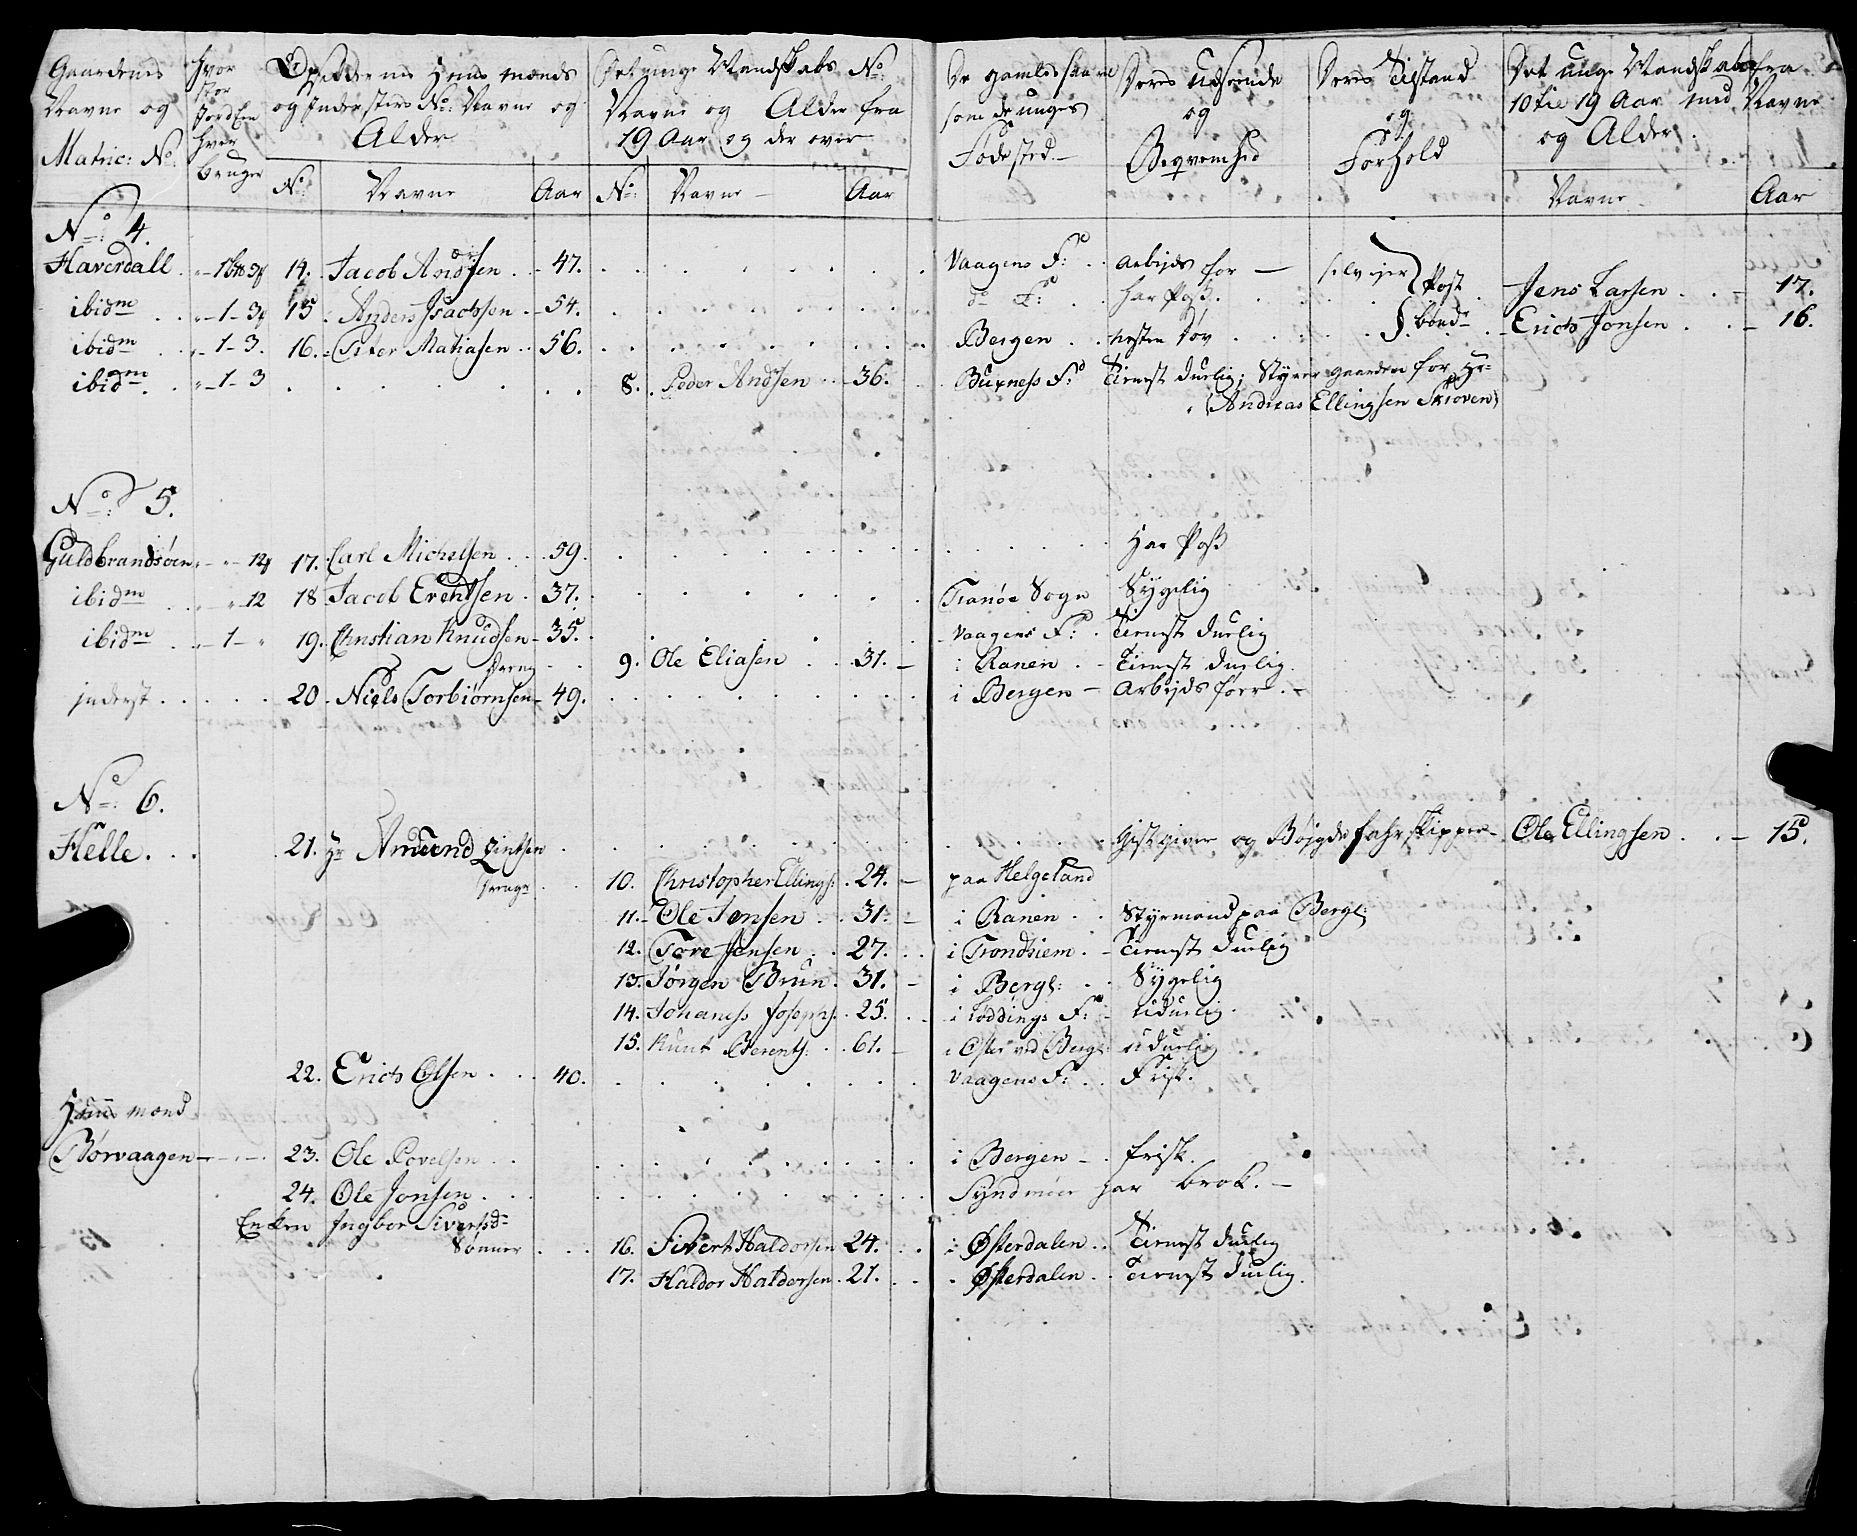 Gaardenes Navne og Matric: No.
Hvor stor Jord En hver bruger
Opsiddernes Huus mænds og Indersters No: Navne og Alder
Det unge Mandskabs No: Navne og Alder fra 19 Aar og der over
De gamles saavel som de unges Fødested
Deres Udseende og Beqvemhed
Deres Tilstand og Forhold
Det unge Mandskab fra 10 til 19 Aar med Navne og Alder
No: Navne Aar No: Navne Aar Navne Aar
No: 4.
Haverdall 14. Jacob Andersen 47. Vaagens F: Arbejds før
ibidm 1-3 15 Anders Isachsen 54. do F: har Poß. Jens Larsen 17.
ibidm 1-3. 16. Peter Matiasen 56. Bergen næsten døv Erich Jonsen 16.
selvejer Post bønd
ibidm 1-3 8. Peder Andersen 36. Buxness F: Tienst duelig; Styrer gaarden for Hr
(Andreas Ellingsen Skroven)
No: 5.
Guldbrandsøen 12 17. Carl Michelsen 59. Har Poß
ibidm 12 18 Jacob Erentsen 37. Tranøe Sogn Sygelig
ibidm 1 19. Christian Knudsen 35. Vaagens F: Tienst duelig
Dreng 9. Ole Eliasen 31. i Ranen Tienst duelig.
inderst 20. Niels Torbiørnsen 49. i Bergen Arbejds førr.
No: 6.
Helle. 21. Hr Amund Gistgiver og Bøigde fahr skipper Ole Ellingsen 15.
Drenge 10. Christopher Ellings: 24. paa Helgeland
11. Ole Jensen 31. i Ranen Styrmand paa Berge:
12. Tore Jensen 27. i Trondhiem Tienst duelig
13. Jørgen Brun 31. i Berg: Sygelig
14. Johaness Josephs: 25. i Løddings F: uduelig.
15. Knut Berents: 61. i Oster ved Berge: uduelig
22. Erich Olsen 40. Vaagens F: Frisk.
Huus mænd
Børvaagen 23. Ole Povelsen i Bergen frisk.
24. Ole Jonsen Syndmøer har brok.
Enken Ingbor Sivertsd:
Sønner 16. Sivert Haldorsen 24. i Østerdalen Tienst duelig
17. Haldor Haldorsen 21. Østerdalen Tienst duelig.